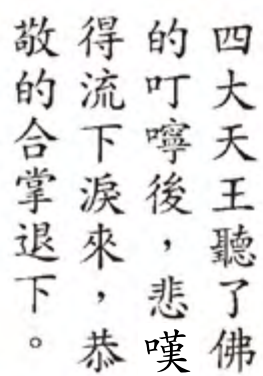 四大天王聽了佛
的叮嚀後，悲嘆
得流下淚來，恭
敬的合掌退下。